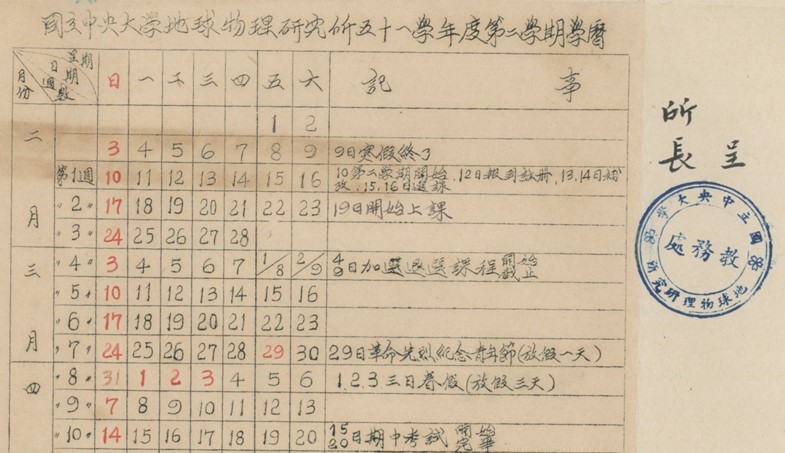 國立中央大学地球物理研究所五十一學年度第二学期学曆
星期 日期 週數 月份 日 一 二 三 四 五 六 記 事
二月
1 2
3 4 5 6 7 8 9 9日寒假終了
第1週 10 11 12 13 14 15 16 10第二學期開始.12日報到註冊,13,14日補
改.15,16日選課
〃2〃 17 18 19 20 21 22 23 19日開始上課
〃3〃 24 25 26 27 28
三月
〃4〃 3 4 5 6 7 1/8 2/9 4日加選退選課程開始
9 截止
〃5〃 10 11 12 13 14 15 16
〃6〃 17 18 19 20 21 22 23
〃7〃 24 25 26 27 28 29 30 29日革命先烈紀念青年節(放假一天)
四
〃8〃 31 1 2 3 4 5 6 1.2.3三日春假(放假三天)
〃9〃 7 8 9 10 11 12 13
〃10〃 14 15 16 17 18 19 20 15日期中考試開始
20 完畢
所長 呈
國立中央大學
教務處
地球物理研究所